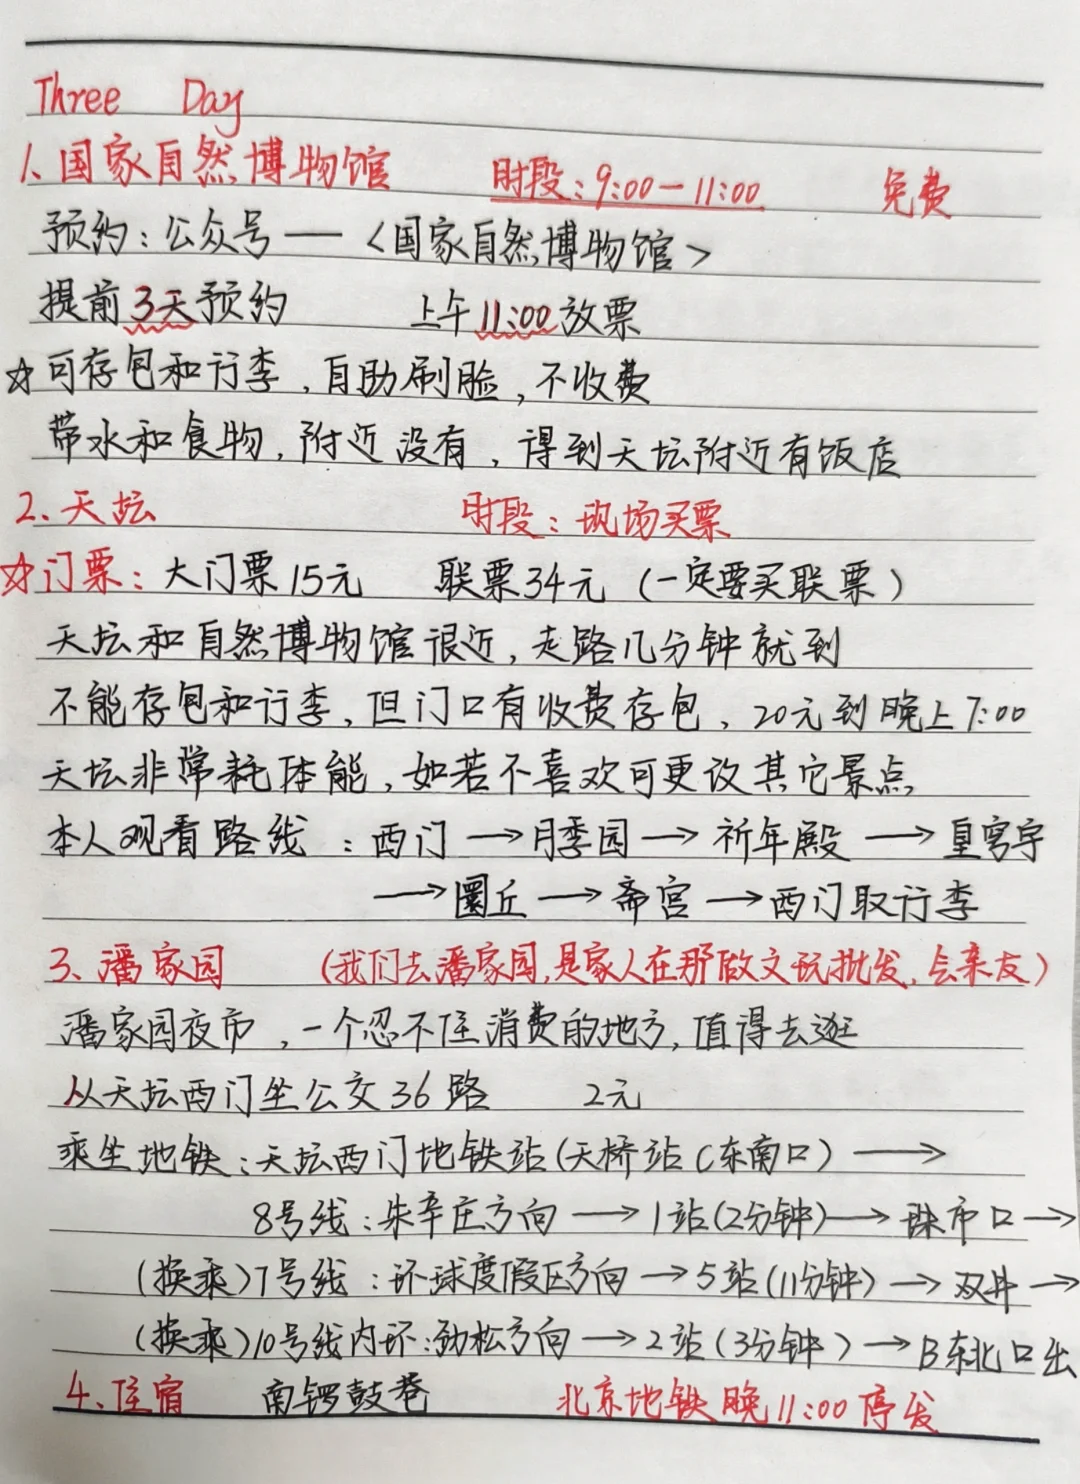 Three Day
1、国家自然博物馆 时段：9:00—11:00 免费
预约：公众号——〈国家自然博物馆〉
提前3天预约 上午11:00放票
☆可存包和行李，自助刷脸，不收费
带水和食物，附近没有，得到天坛附近有饭店
2、天坛 时段：现场买票
☆门票：大门票15元 联票34元（一定要买联票）
天坛和自然博物馆很近，走路几分钟就到
不能存包和行李，但门口有收费存包，20元到晚上7:00
天坛非常耗体能，如若不喜欢可更改其它景点
本人观看路线：西门→月季园→祈年殿→皇穹宇
→圜丘→斋宫→西门取行李
3、潘家园 （我们去潘家园，是家人在那做文玩批发，会亲友）
潘家园夜市，一个忍不住消费的地方，值得去逛
从天坛西门坐公交36路 2元
乘坐地铁：天坛西门地铁站（天桥站C东南口）→
8号线：朱辛庄方向→1站（2分钟）→珠市口→
（换乘）7号线：环球度假区方向→5站（11分钟）→双井→
（换乘）10号线内环：劲松方向→2站（3分钟）→B东北口出
4、住宿 南锣鼓巷 北京地铁晚11:00停发